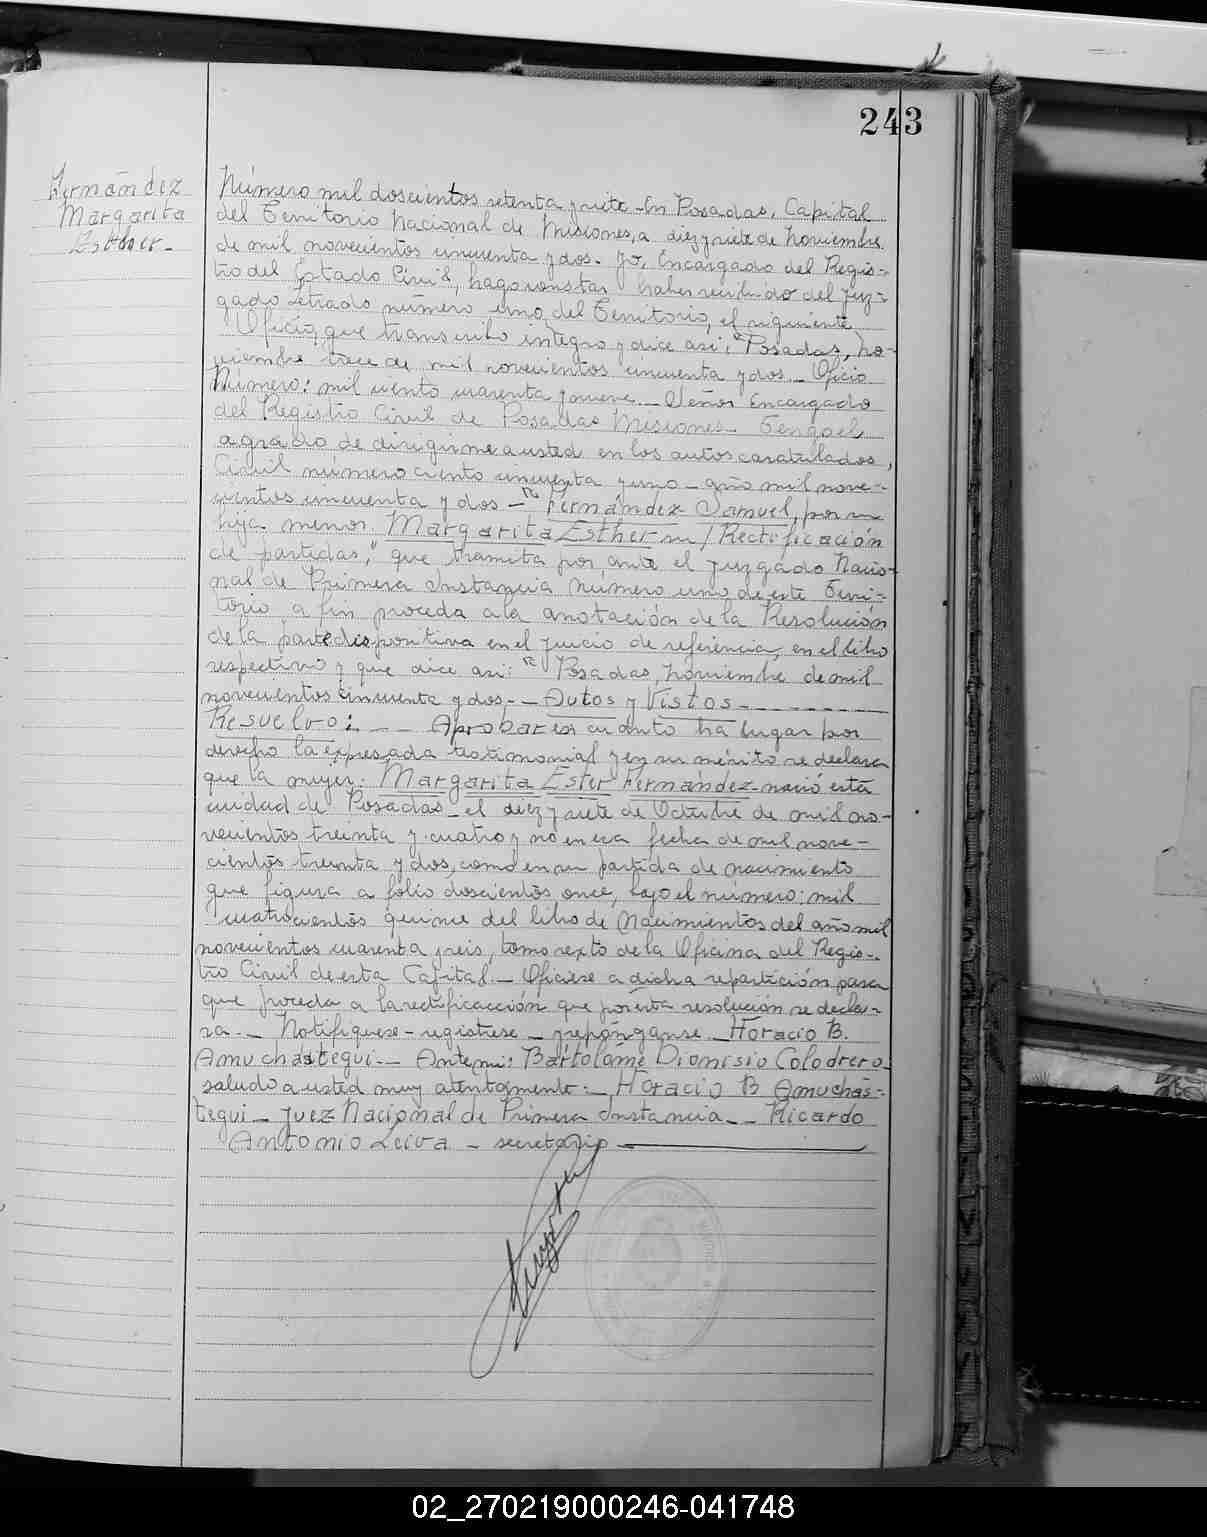 243
Fernández
Margarita
Esther.-
Número mil doscientos setenta y siete - En Posadas, Capital
del Territorio Nacional de Misiones, a diez y siete de Noviembre
de mil novecientos cincuenta y dos. Yo, Encargado del Regis-
tro del Estado Civil, hago constar haber recibido del Juz-
gado Letrado número uno del Territorio, el siguiente
Oficio, que transcribo integro y dice asi; "Posadas, No-
viembre trece de mil novecientos cincuenta y dos.- Oficio
Número: mil ciento cuarenta y nueve.- Señor Encargado
del Registro Civil de Posadas Misiones.- Tengo el
agrado de dirigirme a usted en los autos caratulados,
Civil número ciento cincuenta y uno - año mil nove-
cientos cincuenta y dos - "Fernández Samuel, por su
hija menor. Margarita Esther s/ Rectificación
de partidas," que tramita por ante el Juzgado Nacio-
nal de Primera Instancia número uno de este Terri-
torio, a fin proceda a la anotación de la Resolución
de la parte dispositiva en el juicio de referencia, en el libro
respectivo y que dice asi: " Posadas, Noviembre de mil
novecientos cincuenta y dos.- Autos y Vistos
Resuelvo: -- Aprobar en cuanto ha lugar por
derecho la expresada testimonial y en su mérito se declara
que la mujer. Margarita Ester Fernández - nació esta
ciudad de Posadas - el diez y siete de Octubre de mil no-
vecientos treinta y cuatro y no en esa fecha de mil nove-
cientos treinta y dos, como en su partida de nacimiento
que figura a folio doscientos once, bajo el número: mil
cuatrocientos quince del libro de Nacimientos del año mil
novecientos cuarenta y seis, tomo sexto de la Oficina del Regis-
tro Civil de esta Capital.- Ofíciese a dicha repartición para
que proceda a la rectificacción que por esta resolución se decla-
ra.- Notifiquese - registrese - y repónganse.- Horacio B.
Amuchastegui.- Ante mi: Bartolomé Dionisio Colodrero
saludo a usted muy atentamente.- Horacio B Amuchás-
tegui - Juez Nacional de Primera Instancia.- Ricardo
Antonio Leiva - secretario
02_270219000246-041748